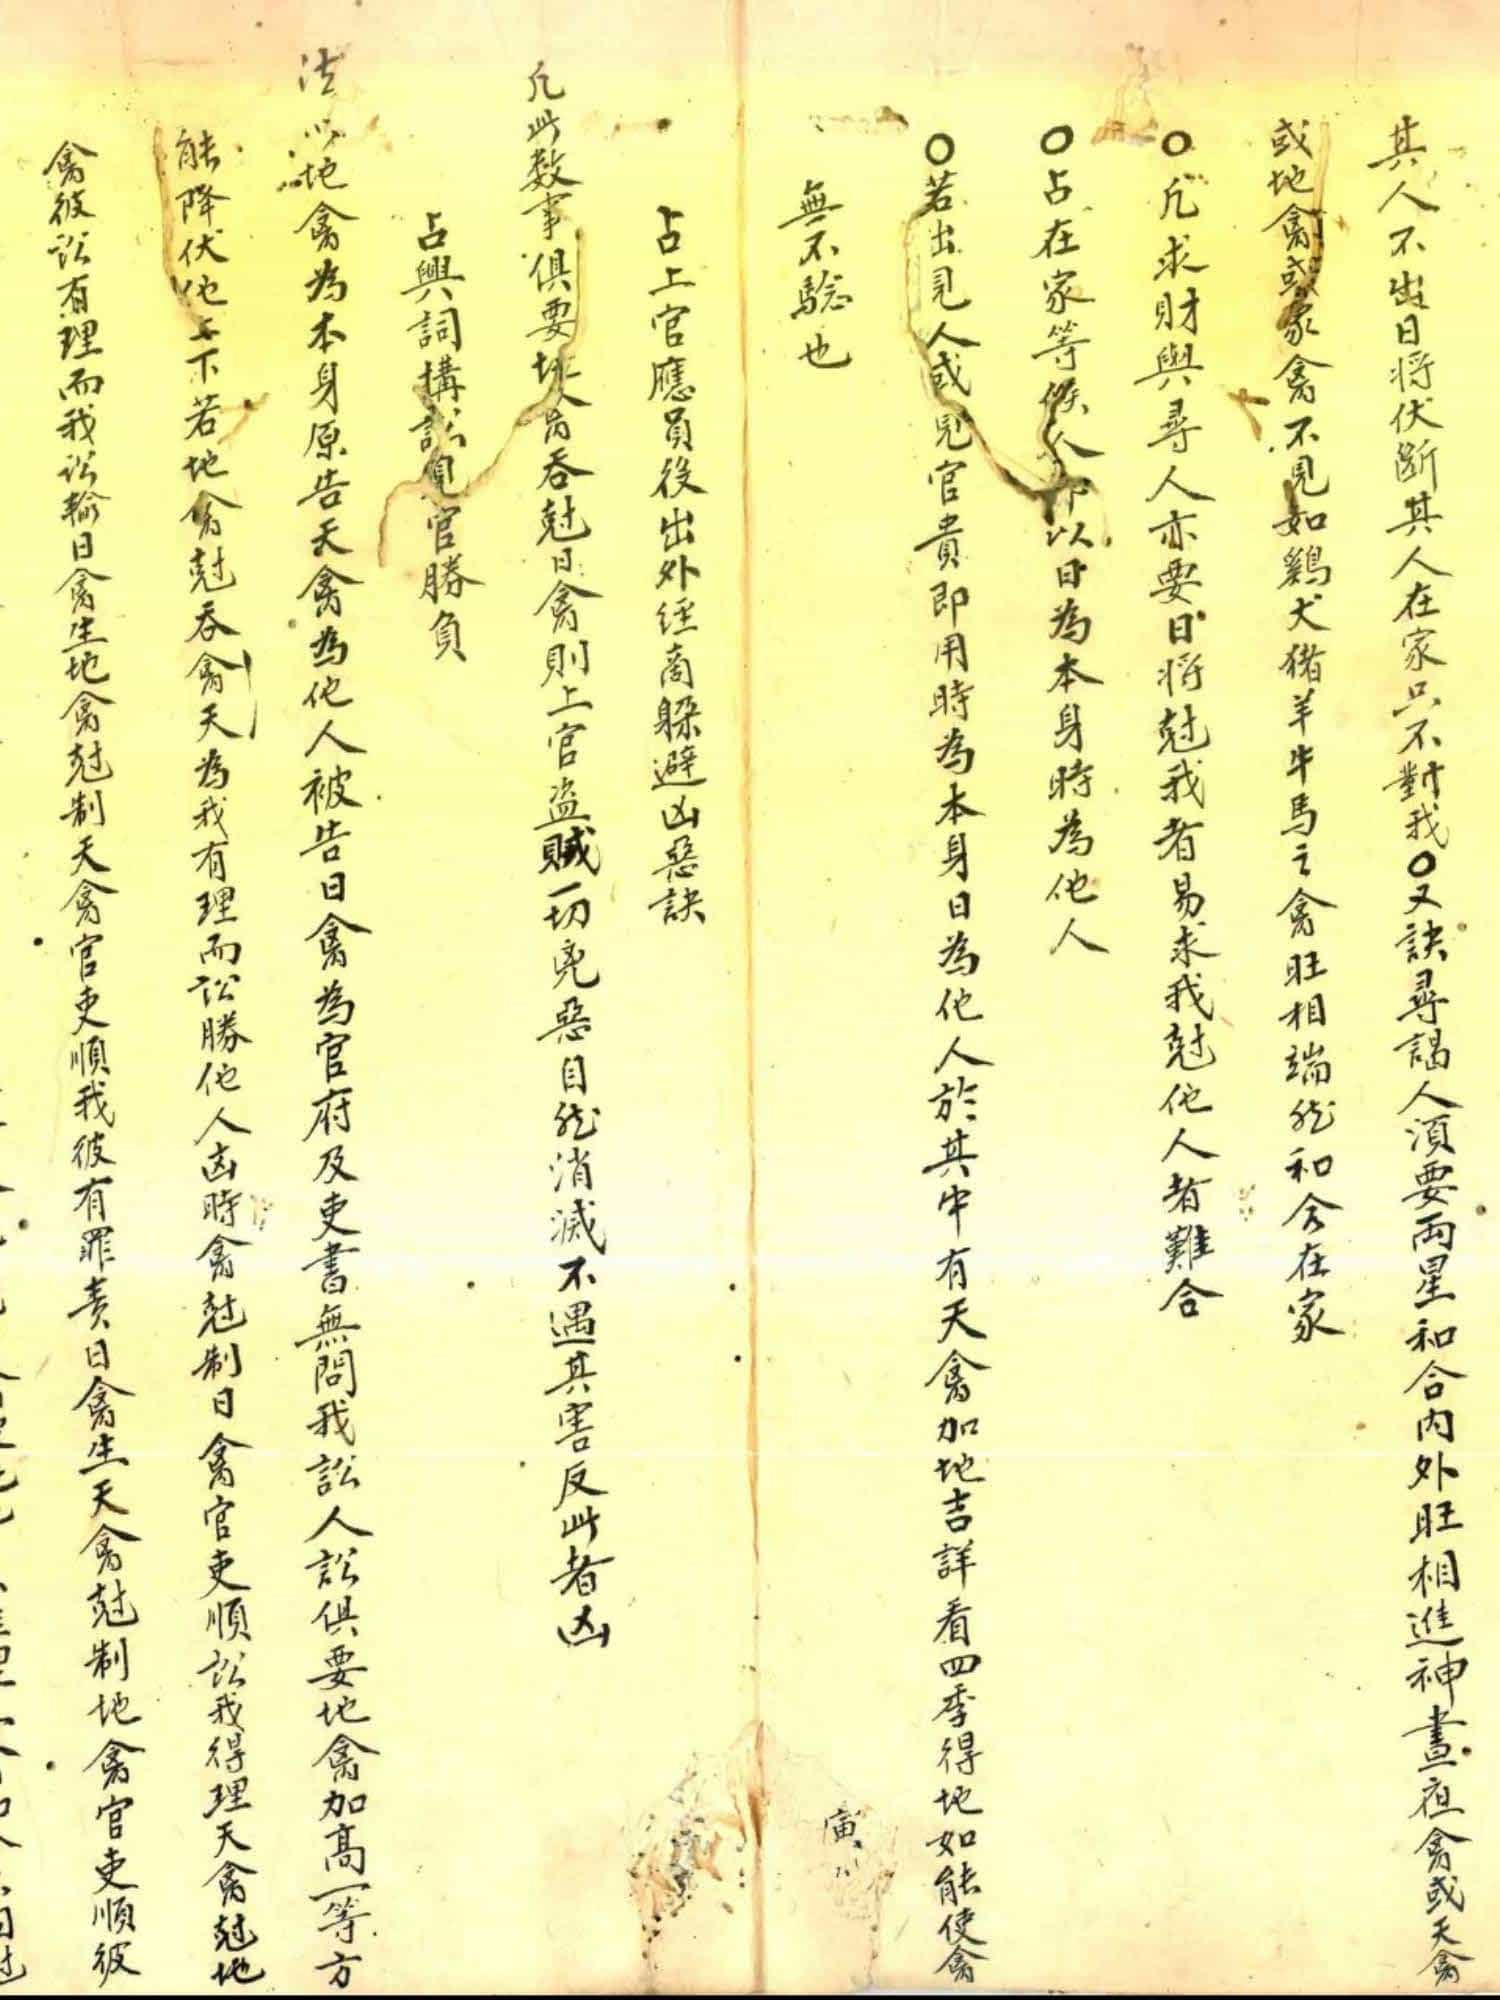 其人不出日将伏断其人在家只不對我○又訣尋謁人須要両星和合内外旺相進神晝夜禽或天禽
或地禽或家禽不見如鷄犬猪羊牛馬之禽旺相端然和合在家
○凡求財與尋人亦要日将尅我者易求我尅他人者難合
○占在家等候人即以日為本身時為他人
○若出見人或見官貴即用時為本身日為他人於其中有天禽加地吉詳看四季得地如能使禽
無不驗也
寅
占上官應員役出外經商躱避凶惡訣
凡此数事俱要坐昂吞尅日禽則上官盗贼一切兇惡自然消滅不遇其害反此者凶
占興詞搆訟見官勝負
法以地禽為本身原告天禽為他人被告日禽為官府及吏書無問我訟人訟俱要地禽加高一等方
能降伏他上下若地禽尅吞禽天為我有理而訟勝他人凶時禽尅制日禽官吏順訟我得理天禽尅地
禽彼訟有理而我訟輸日禽生地禽尅制天禽官吏順我彼有罪責日禽生天禽尅制地禽官吏順彼